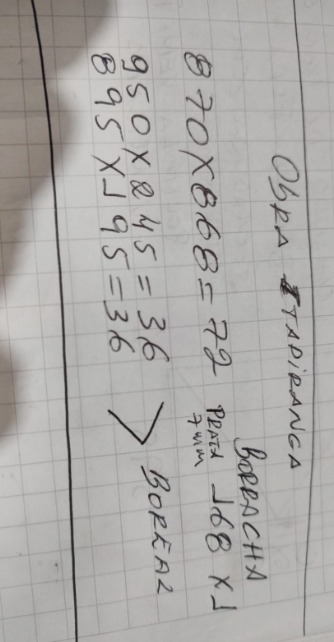 OBRA ITAPIRANGA
BORRACHA
870X868=72 PRATA 7mm 168 X 1
950X245=36
895X195=36 > BOREAL